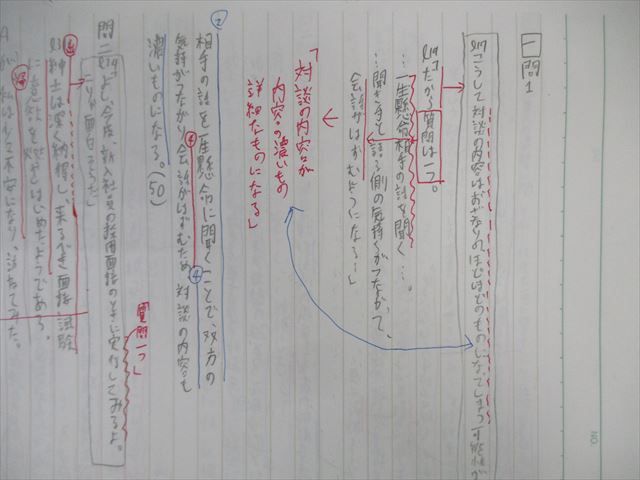 一 問1
l17 こうして対談の内容はおざなりのほどほどのものになってしまう可能性が
l19 だから 質問は一つ。
…一生懸命相手の話を聞く…。
…聞き手と話し側の気持ちがつながって、
会話がはずむようになる…」
「対談の内容が
内容の濃いもの
詳細なものになる」
②
相手の話を一生懸命に聞くことで、双方の
気持ちがつながり会話がはずむため、対談の内容も
濃いものになる。(50)
④
質問一つ」
問二 l19 よし、今度、新入社員の採用面接のときに実行してみるよ。
こりゃ面白そうだ」
l3 紳士は深く納得し、来るべき面接試験
に意欲を燃やしはじめたようである。
A が、私は少々不安になり、訊ねてみた。
NO.